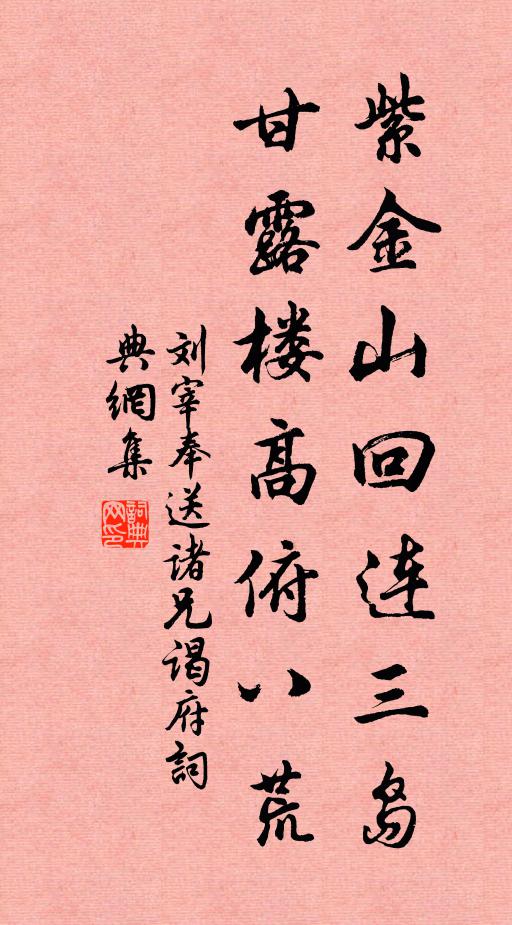 紫金山回连三岛
甘露楼高俯八荒
刘宰奉送诸兄谒府詞
典網集
詞典网印